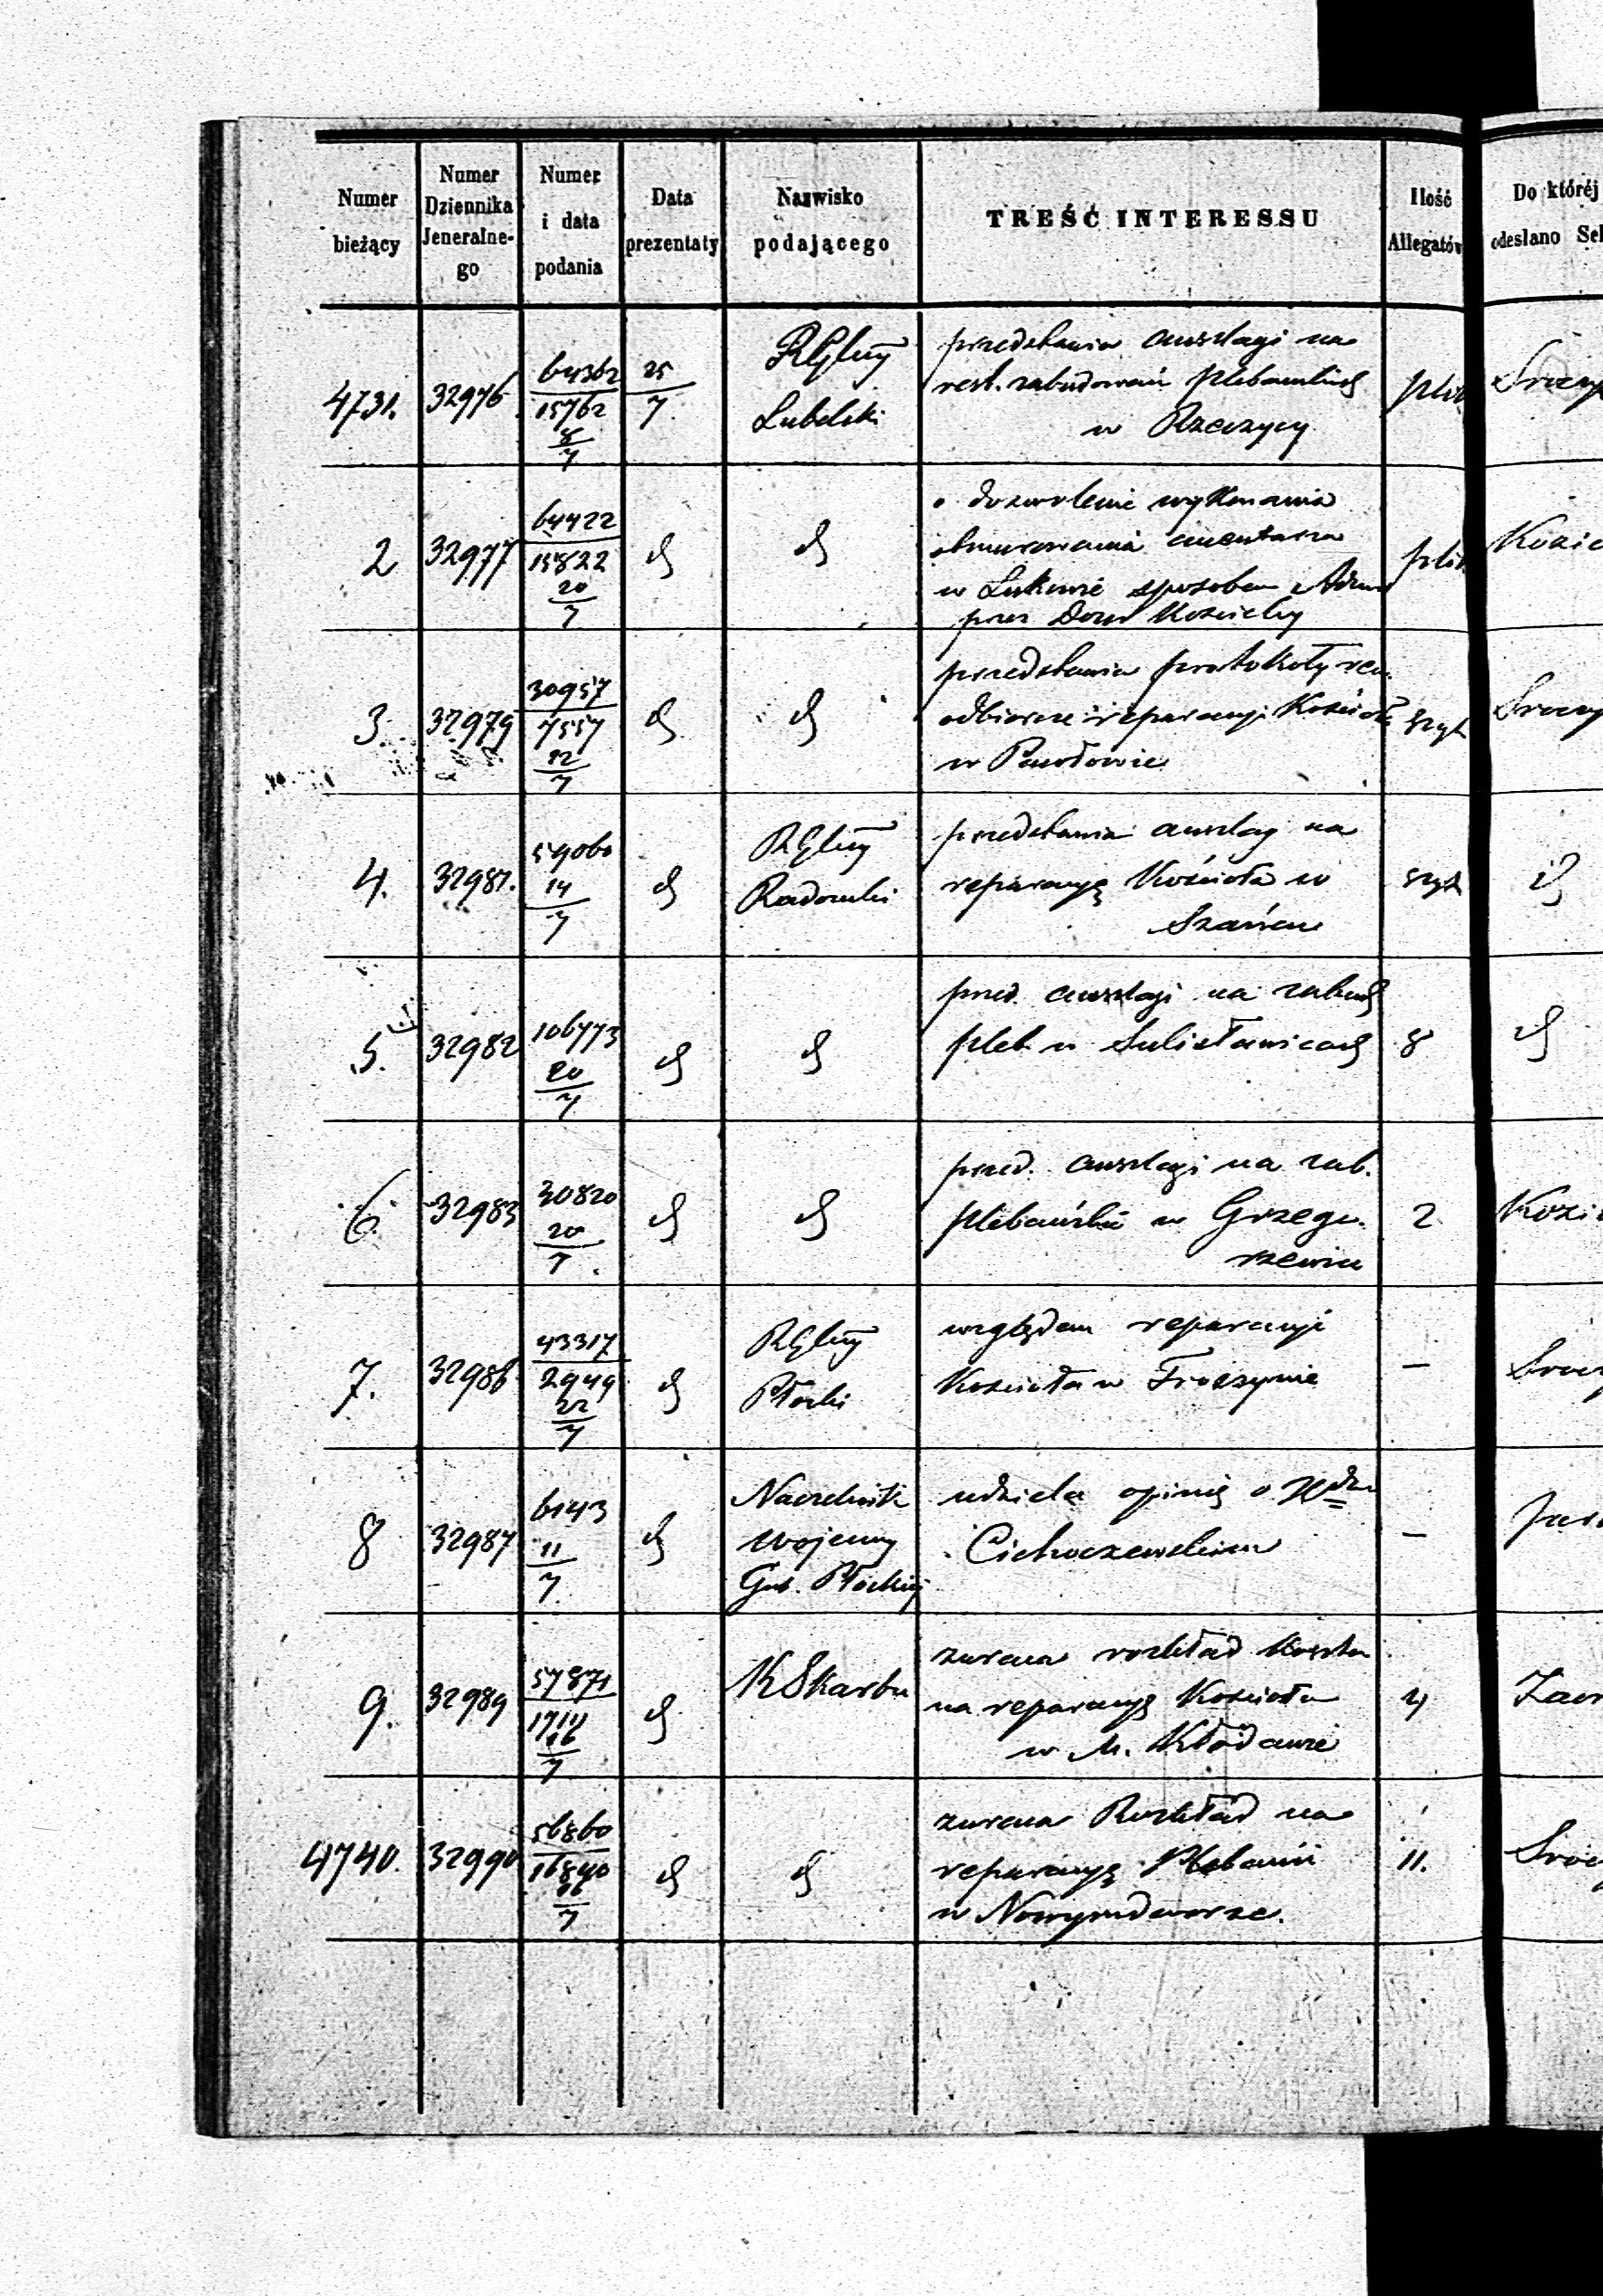 Numer bieżący
Numer Dziennika Jeneralne-go
Numer i data podania
Data prezentaty
Nazwisko podającego
TREŚĆ INTERESSU
Ilość Allegatów
Do któréj odesłano Sek
4731. 32976 64362 25
15762 7.
8
7
RGlny
Lubelski
przedstawia anszlagi na
rest. zabudowań plebańskich
w Rzeczycy
plik
2 32977 64422
15822
20
7
d d
o dozwolenie wykonania
obmurowania cmentarza
w Łukowie sposobem Adm
przez Dozor Kościelny
plik
3. 32979 30957
7557
22
7
d d
przedstawia protokoły rew.
odbiorcze reparacyi Kościoła
w Pawłowie
szyt
4. 32981. 59060
14
7
d
RGlny
Radomski
przedstawia anszlag na
reparacyę Kościoła w
Szańcu
szyt d
5. 32982 106773
20
7
d d
przed. anszlagi na zabud
pleb. w Sulisławicach
8 d
6. 32983 30820
20
7.
d d
przed. anszlagi na zab.
plebańskie w Grzego-
rzewie
2
7. 32986 43317
2949
22
7
d
RGlny
Płocki
względem reparacyi
Kościoła w Troszynie
—
8 32987 6143
11
7.
d
Naczelnik
Wojenny
Gub. Płockiej
udziela opinię o Xdzu
Cichoszewskim
—
9. 32989 57871
1711
16
7
d
KSkarbu
zwraca rozkład kosztu
na reparacyę Kościoła
w M. Kłodawie
4
4740. 32990 56860
16840
16
7
d d
zwraca Rozkład na
reparacyę Plebanii
w Nowymdworze.
11.